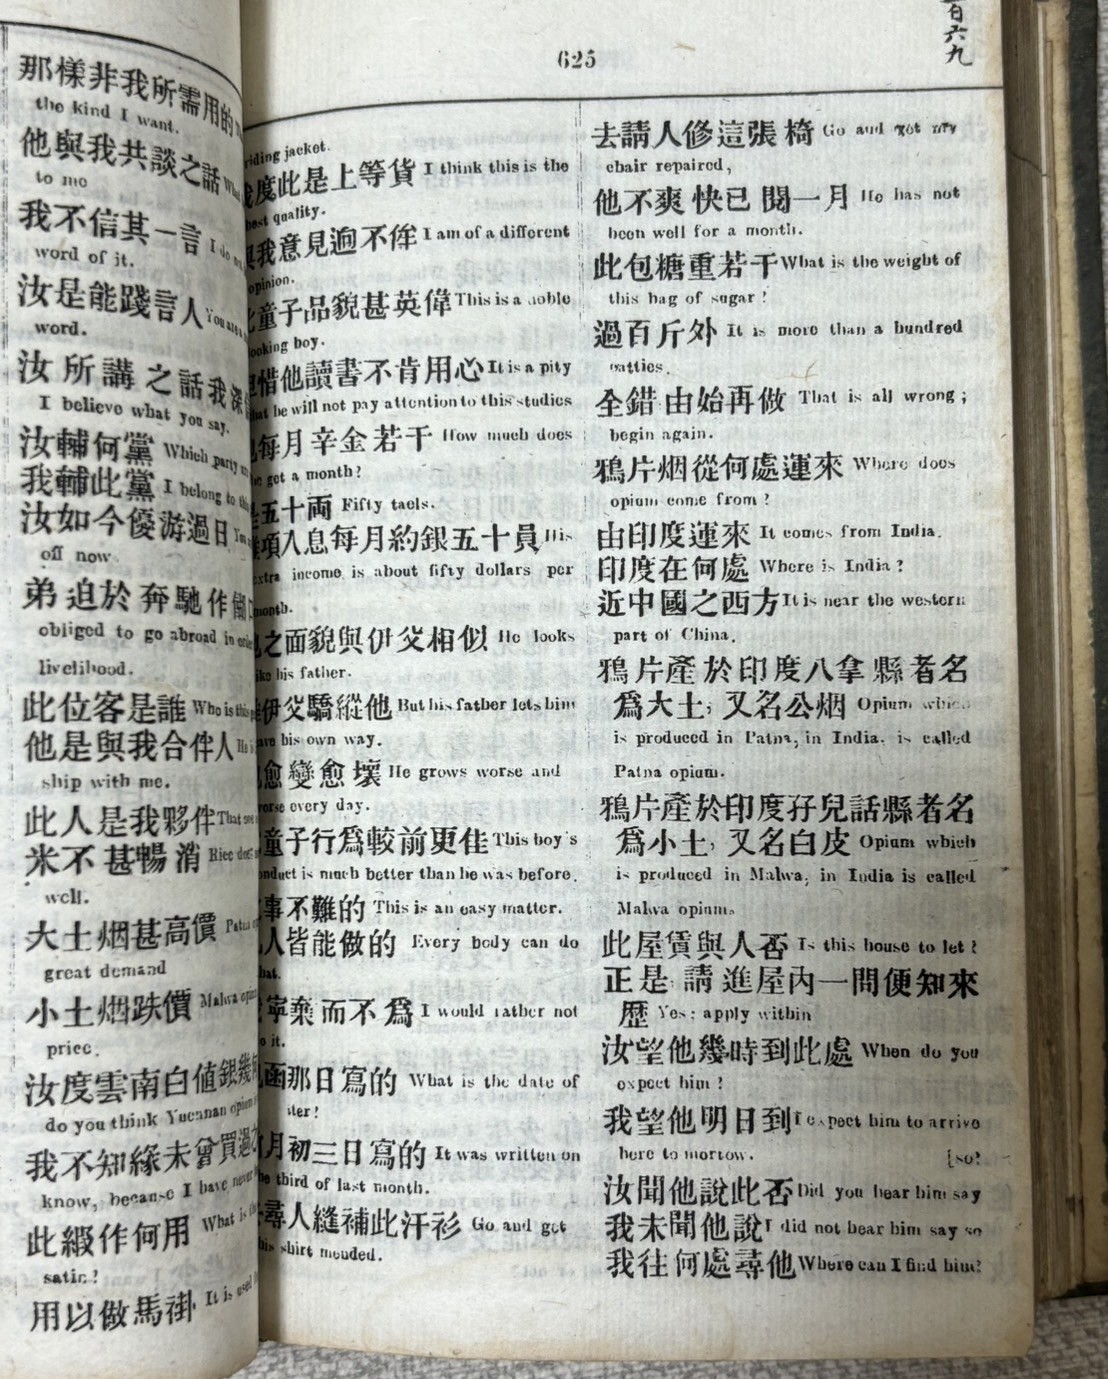 那樣非我所需用的
the kind I want.
他與我共談之話
to me
我不信其一言 I do
word of it.
汝是能踐言人 You are
word.
汝所講之話我深
I believe what you say.
汝輔何黨 Which party
我輔此黨 I belong to this
汝如今優游過日
off now
弟迫於奔馳作
obliged to go abroad in order
livelihood.
此位客是誰 Who is this
他是與我合伴人
ship with me.
此人是我夥伴 That
米不甚暢消 Rice does
well.
大土烟甚高價 Patna
great demand
小土烟跌價 Malwa opium
price.
汝度雲南白值銀幾何
do you think Yucanan opium
我不知緣未曾買過
know, because I have never
此緞作何用 What is
satin?
用以做馬褂 It is used
百六九
625
riding jacket.
我度此是上等貨 I think this is the
best quality.
與我意見逈不侔 I am of a different
opinion.
童子品貌甚英偉 This is a noble
looking boy.
惜他讀書不肯用心 It is a pity
that he will not pay attention to this studies
每月辛金若干 How much does
he get a month?
五十両 Fifty taels.
項入息每月約銀五十員 His
extra income is about fifty dollars per
month.
之面貌與伊父相似 He looks
like his father.
伊父驕縱他 But his father lets him
have his own way.
愈變愈壞 He grows worse and
worse every day.
童子行爲較前更佳 This boy's
conduct is much better than he was before.
事不難的 This is an easy matter.
人皆能做的 Every body can do
that.
寜棄而不爲 I would rather not
do it.
函那日寫的 What is the date of
letter?
月初三日寫的 It was written on
the third of last month.
尋人縫補此汗衫 Go and get
this shirt mended.
去請人修這張椅 Go and get my
chair repaired,
他不爽快已閱一月 He has not
been well for a month.
此包糖重若干 What is the weight of
this bag of sugar?
過百斤外 It is more than a hundred
catties.
全錯由始再做 That is all wrong;
begin again.
鴉片烟從何處運來 Where does
opium come from?
由印度運來 It comes from India.
印度在何處 Where is India?
近中國之西方 It is near the western
part of China.
鴉片產於印度八拿縣者名
爲大土，又名公烟 Opium which
is produced in Patna, in India. is called
Patna opium.
鴉片產於印度孖兒話縣者名
爲小土，又名白皮 Opium which
is produced in Malwa, in India is called
Malwa opium.
此屋賃與人否 Is this house to let?
正是，請進屋內一問便知來
歷 Yes: apply within
汝望他幾時到此處 When do you
expect him?
我望他明日到 I expect him to arrive
here to morrow. [so?
汝聞他說此否 Did you hear him say
我未聞他說 I did not hear him say so
我往何處尋他 Where can I find him?